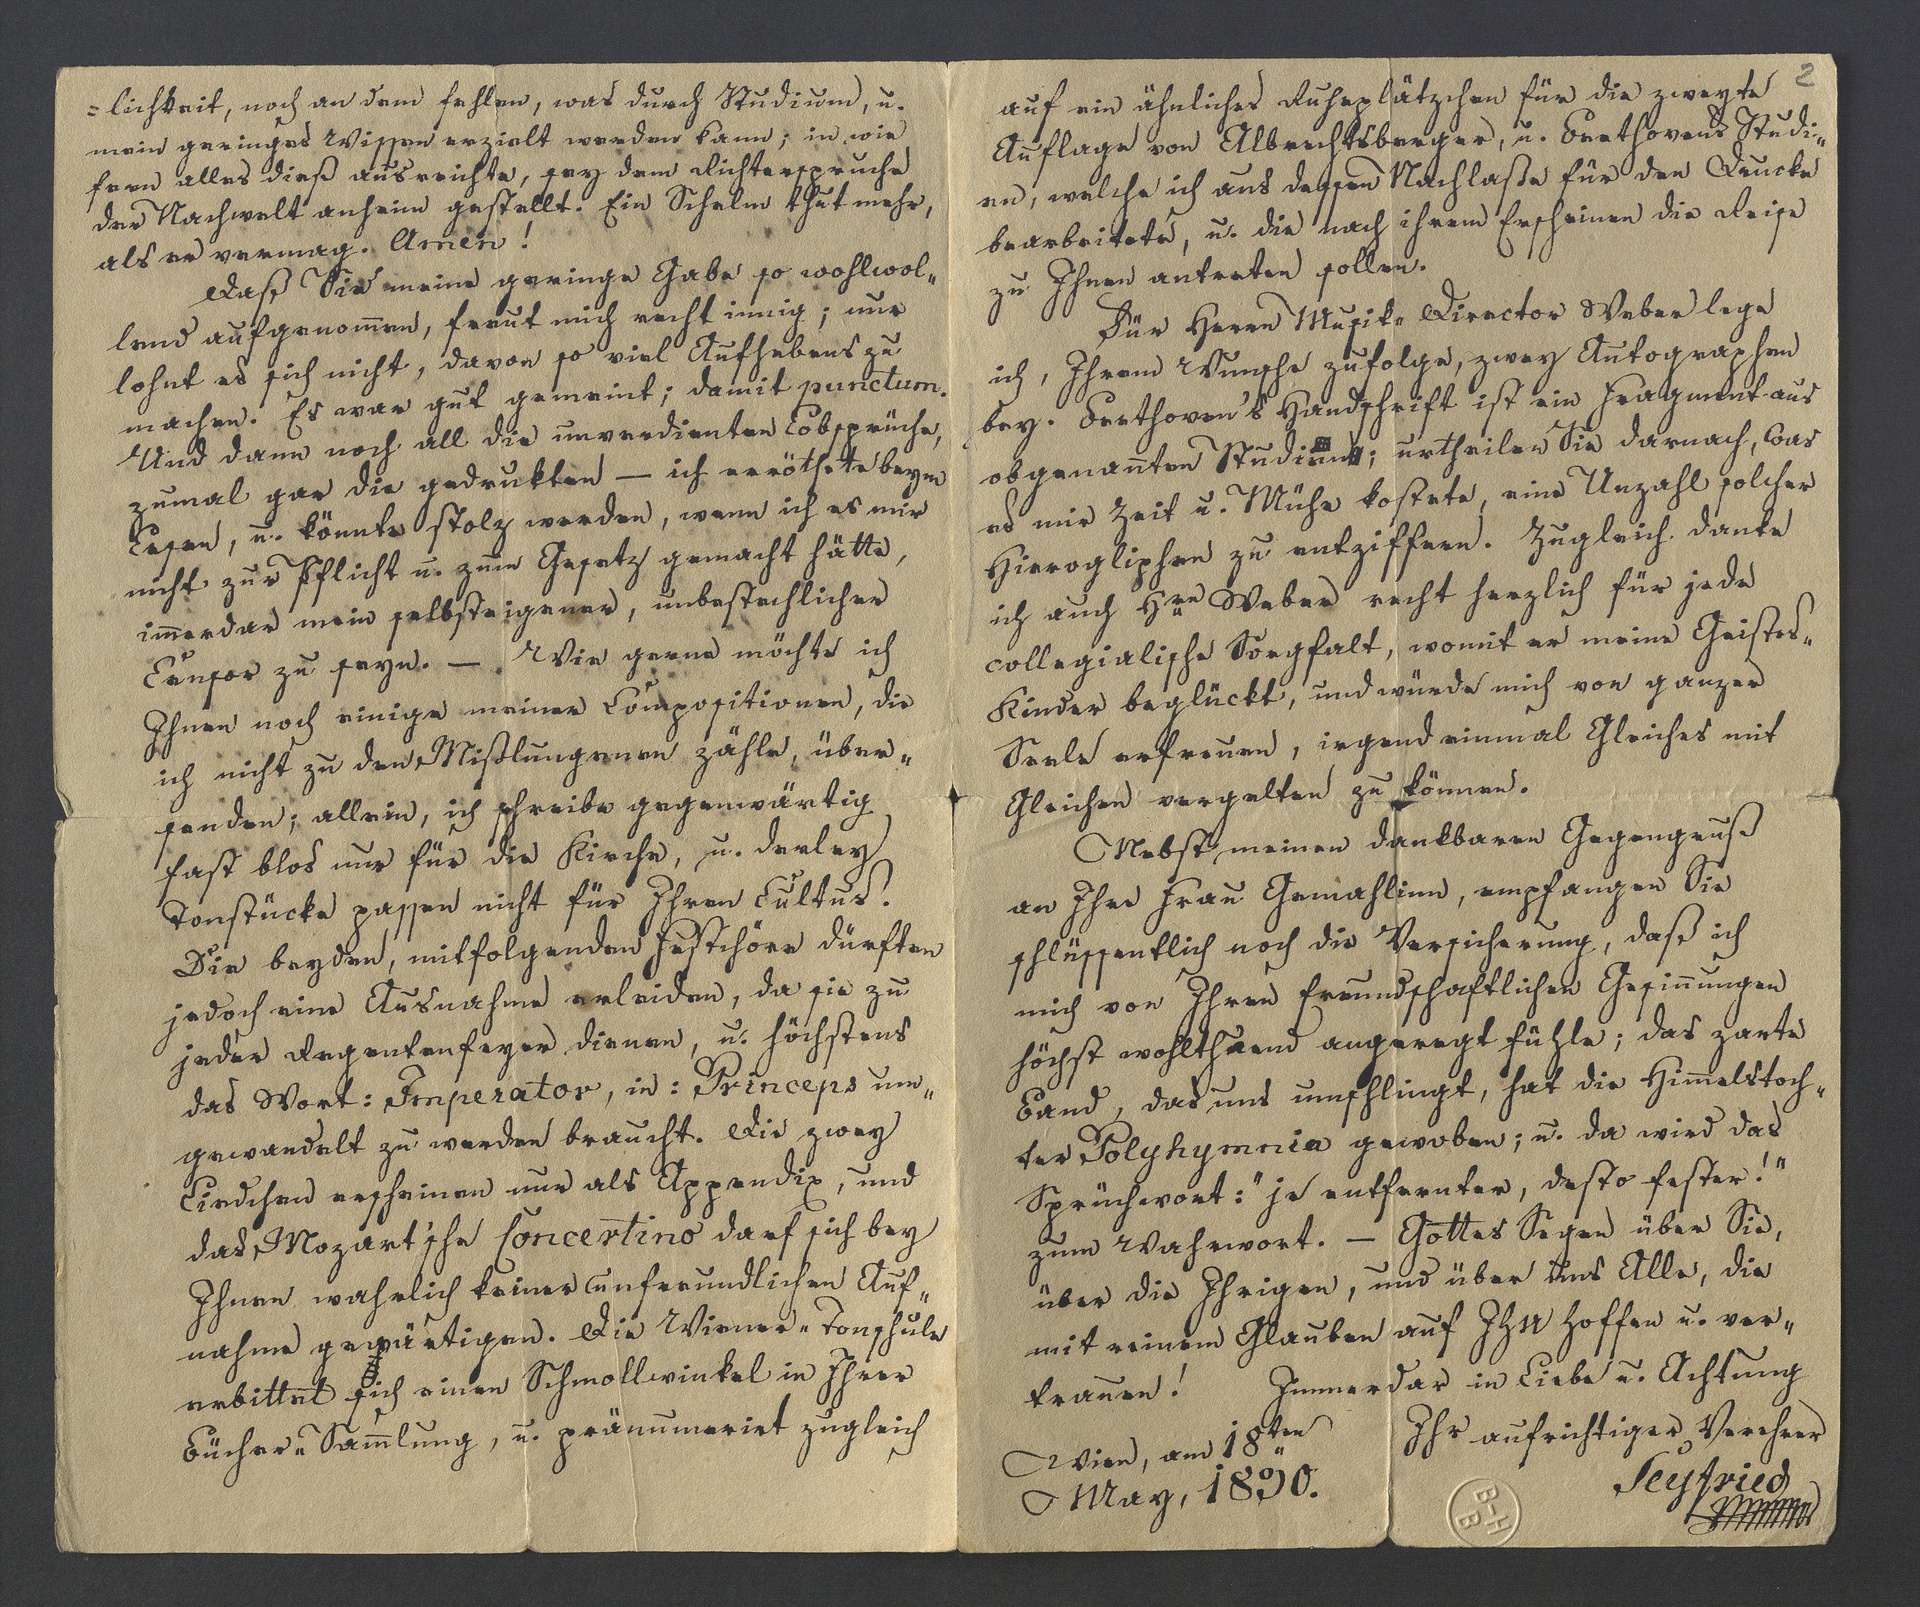 =lichkeit, noch an dem fehlen, was durch Studium, u.
mein geringes Wissen erzielt werden kann; in wie
fern alles dieß ausreichte, sey dem Richterspruche
der Nachwelt anheim gestellt. Ein Schelm thut mehr,
als er vermag. Amen!
Daß Sie meine geringe Gabe so wohlwol„
lend aufgenom̄en, freut mich recht innig; nur
lohnt es sich nicht, davon so viel Aufhebens zu
machen. Es war gut gemeint; damit punctum.
Und dann noch all die unverdienten Lobsprüche,
zumal gar die gedrukten — ich erröthete beym
Lesen, u. könnte stolz werden, wenn ich es mir
nicht zur Pflicht u. zum Gesetz gemacht hätte,
im̄erdar mein selbsteigener, unbestechlicher
Censor zu seyn. — Wie gerne möchte ich
Ihnen noch einige meiner Compositionen, die
ich nicht zu den Mißlungenen zähle, über„
senden; allein, ich schreibe gegenwärtig
fast blos nur für die Kirche, u. derley
Tonstücke passen nicht für Ihren Cultus.
Die beyden, mitfolgenden Festchöre dürften
jedoch eine Ausnahme erleiden, da sie zu
jeder Regentenfeyer dienen, u. höchstens
das Wort: Imperator, in: Princeps um„
gewandelt zu werden braucht. Die zwey
Liedchen erscheinen nur als Appendix, und
das Mozart'sche Concertino darf sich bey
Ihnen wahrlich keiner unfreundlichen Auf„
nahme gewärtigen. Die Wiener„Tonschule
erbittet sich einen Schmollwinkel in Ihrer
Bücher„Sam̄lung, u. pränumerirt zugleich
2
auf ein ähnliches Ruheplätzchen für die zweyte
Auflage von Albrechtsberger, u. Beethovens Studi„
en, welche ich aus dessen Nachlaße für den Drucke
bearbeitete, u. die nach ihrem Erscheinen die Reise
zu Ihnen antreten sollen.
Für Herrn Musik„Director Weber lege
ich, Ihrem Wunsche zufolge, zwey Autographen
bey. Beethoven's Handschrift ist ein Fragment aus
obgenan̄ten Studien; urtheilen Sie darnach, was
es mir Zeit u. Mühe kostete, eine Unzahl solcher
Hierogliphen zu entziffern. Zugleich danke
ich auch Hrn Weber recht herzlich für jede
collegialische Sorgfalt, womit er meine Geistes„
Kinder beglückt, und würde mich von ganzer
Seele erfreuen, irgend einmal Gleiches mit
Gleichem vergelten zu können.
Nebst meinen dankbaren Gegengruß
an Ihre Frau Gemahlinn, empfangen Sie
schlüssentlich noch die Versicherung, daß ich
mich von Ihren freundschaftlichen Gesin̄ungen
höchst wohlthuend angeregt fühle; das zarte
Band, das uns umschlingt, hat die Him̄elstoch„
ter Polyhymnia gewoben; u. da wird das
Sprüchwort: "je entfernter, desto fester!"
zum Wahrwort. — Gottes Segen über Sie,
über die Ihrigen, und über uns Alle, die
mit reinem Glauben auf Ihn hoffen u. ver„
trauen! Immerdar in Liebe u. Achtung
Ihr aufrichtiger Verehrer
Wien, am 18ten
May, 1830.
Seyfried
B-H
B